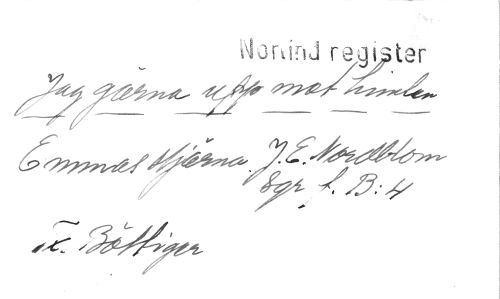 Norlind register
Jag gärna upp mot himlen
Emmas stjärna. J.E. Nordblom
Sgr f. B:4
Tx. Böttiger